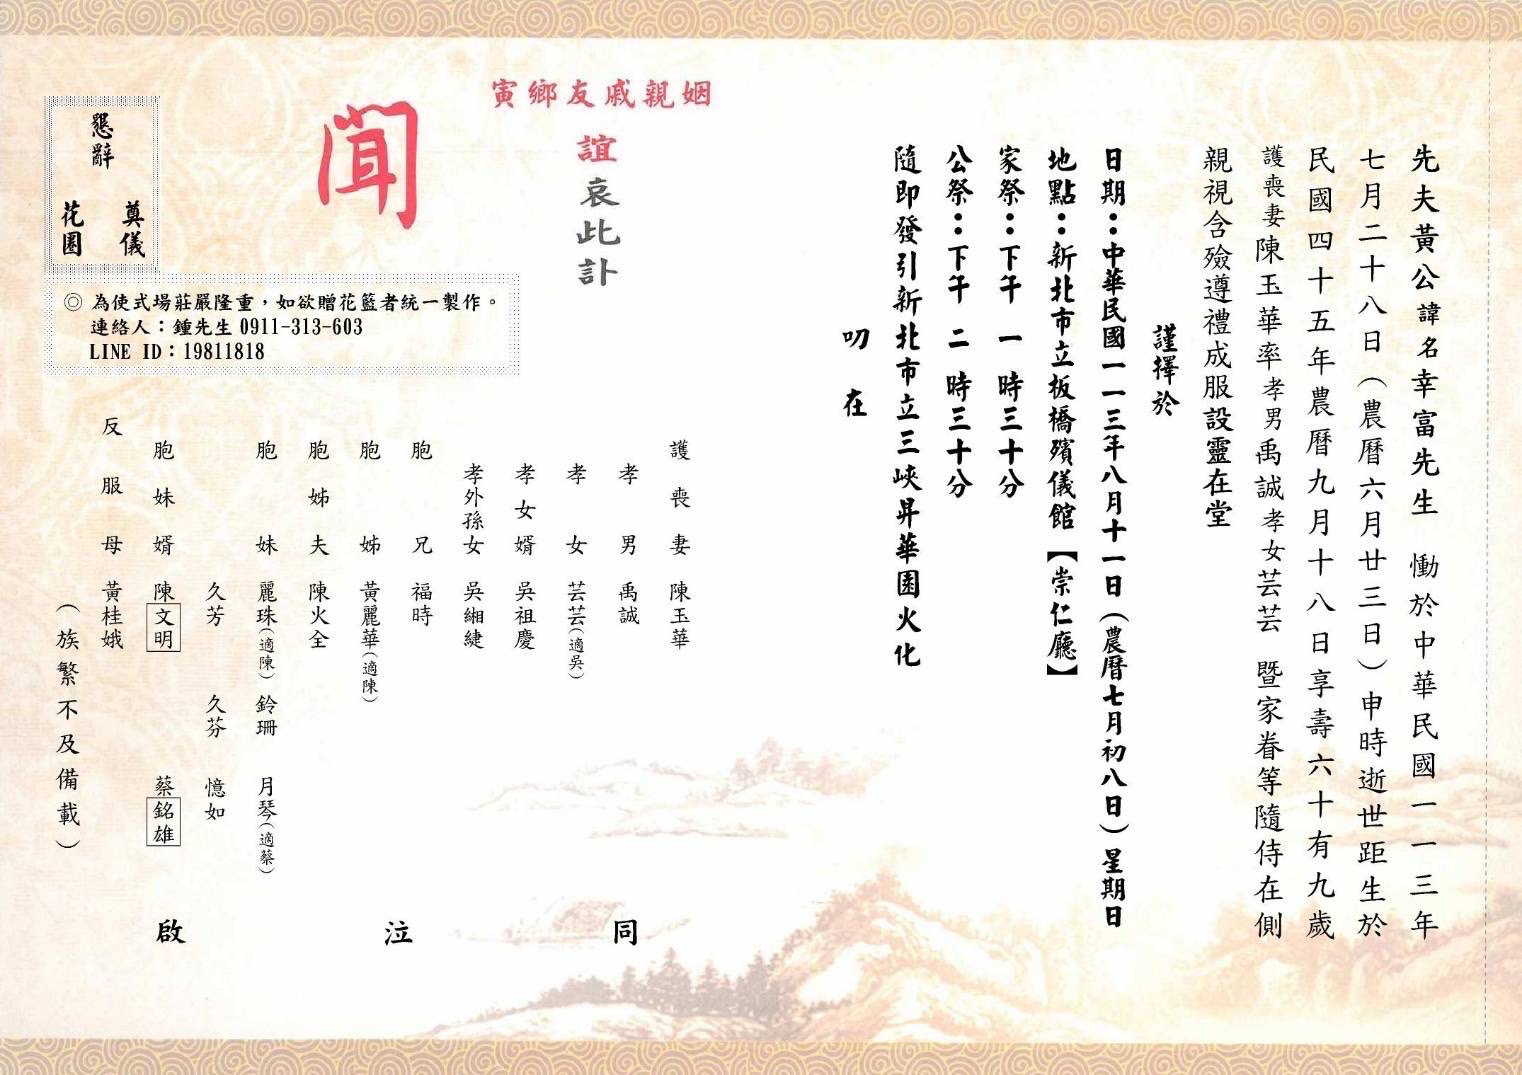 先夫黃公諱名幸富先生　慟於中華民國一一三年
七月二十八日（農曆六月廿三日）申時逝世距生於
民國四十五年農曆九月十八日享壽六十有九歲
護喪妻陳玉華率孝男禹誠孝女芸芸　暨家眷等隨侍在側
親視含殮遵禮成服設靈在堂
謹擇於
日期：中華民國一一三年八月十一日（農曆七月初八日）星期日
地點：新北市立板橋殯儀館【崇仁廳】
家祭：下午 一 時三十分
公祭：下午 二 時三十分
隨即發引新北市立三峽昇華園火化
叨　在
姻親戚友鄉寅
誼哀此訃
聞
護喪妻　陳玉華
孝男　禹誠
孝女　芸芸（適吳）
孝女婿　吳祖慶
孝外孫女　吳緗緁
胞兄　福時
胞姊　黃麗華（適陳）
胞姊夫　陳火全
胞妹　麗珠（適陳）　鈴珊　月琴（適蔡）
久芳　久芬　憶如
胞妹婿　陳文明　蔡銘雄
反服母　黃桂娥
（族繁不及備載）
同　泣　啟
懇辭
奠儀
花圈
◎ 為使式場莊嚴隆重，如欲贈花籃者統一製作。
連絡人：鍾先生 0911-313-603
LINE ID：19811818